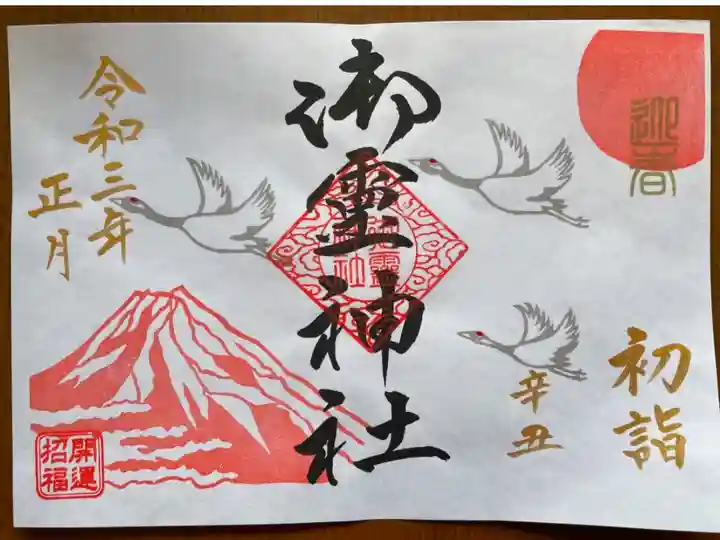 迎春
初詣
辛丑
御霊神社
御霊神社
令和三年
正月
開運
招福